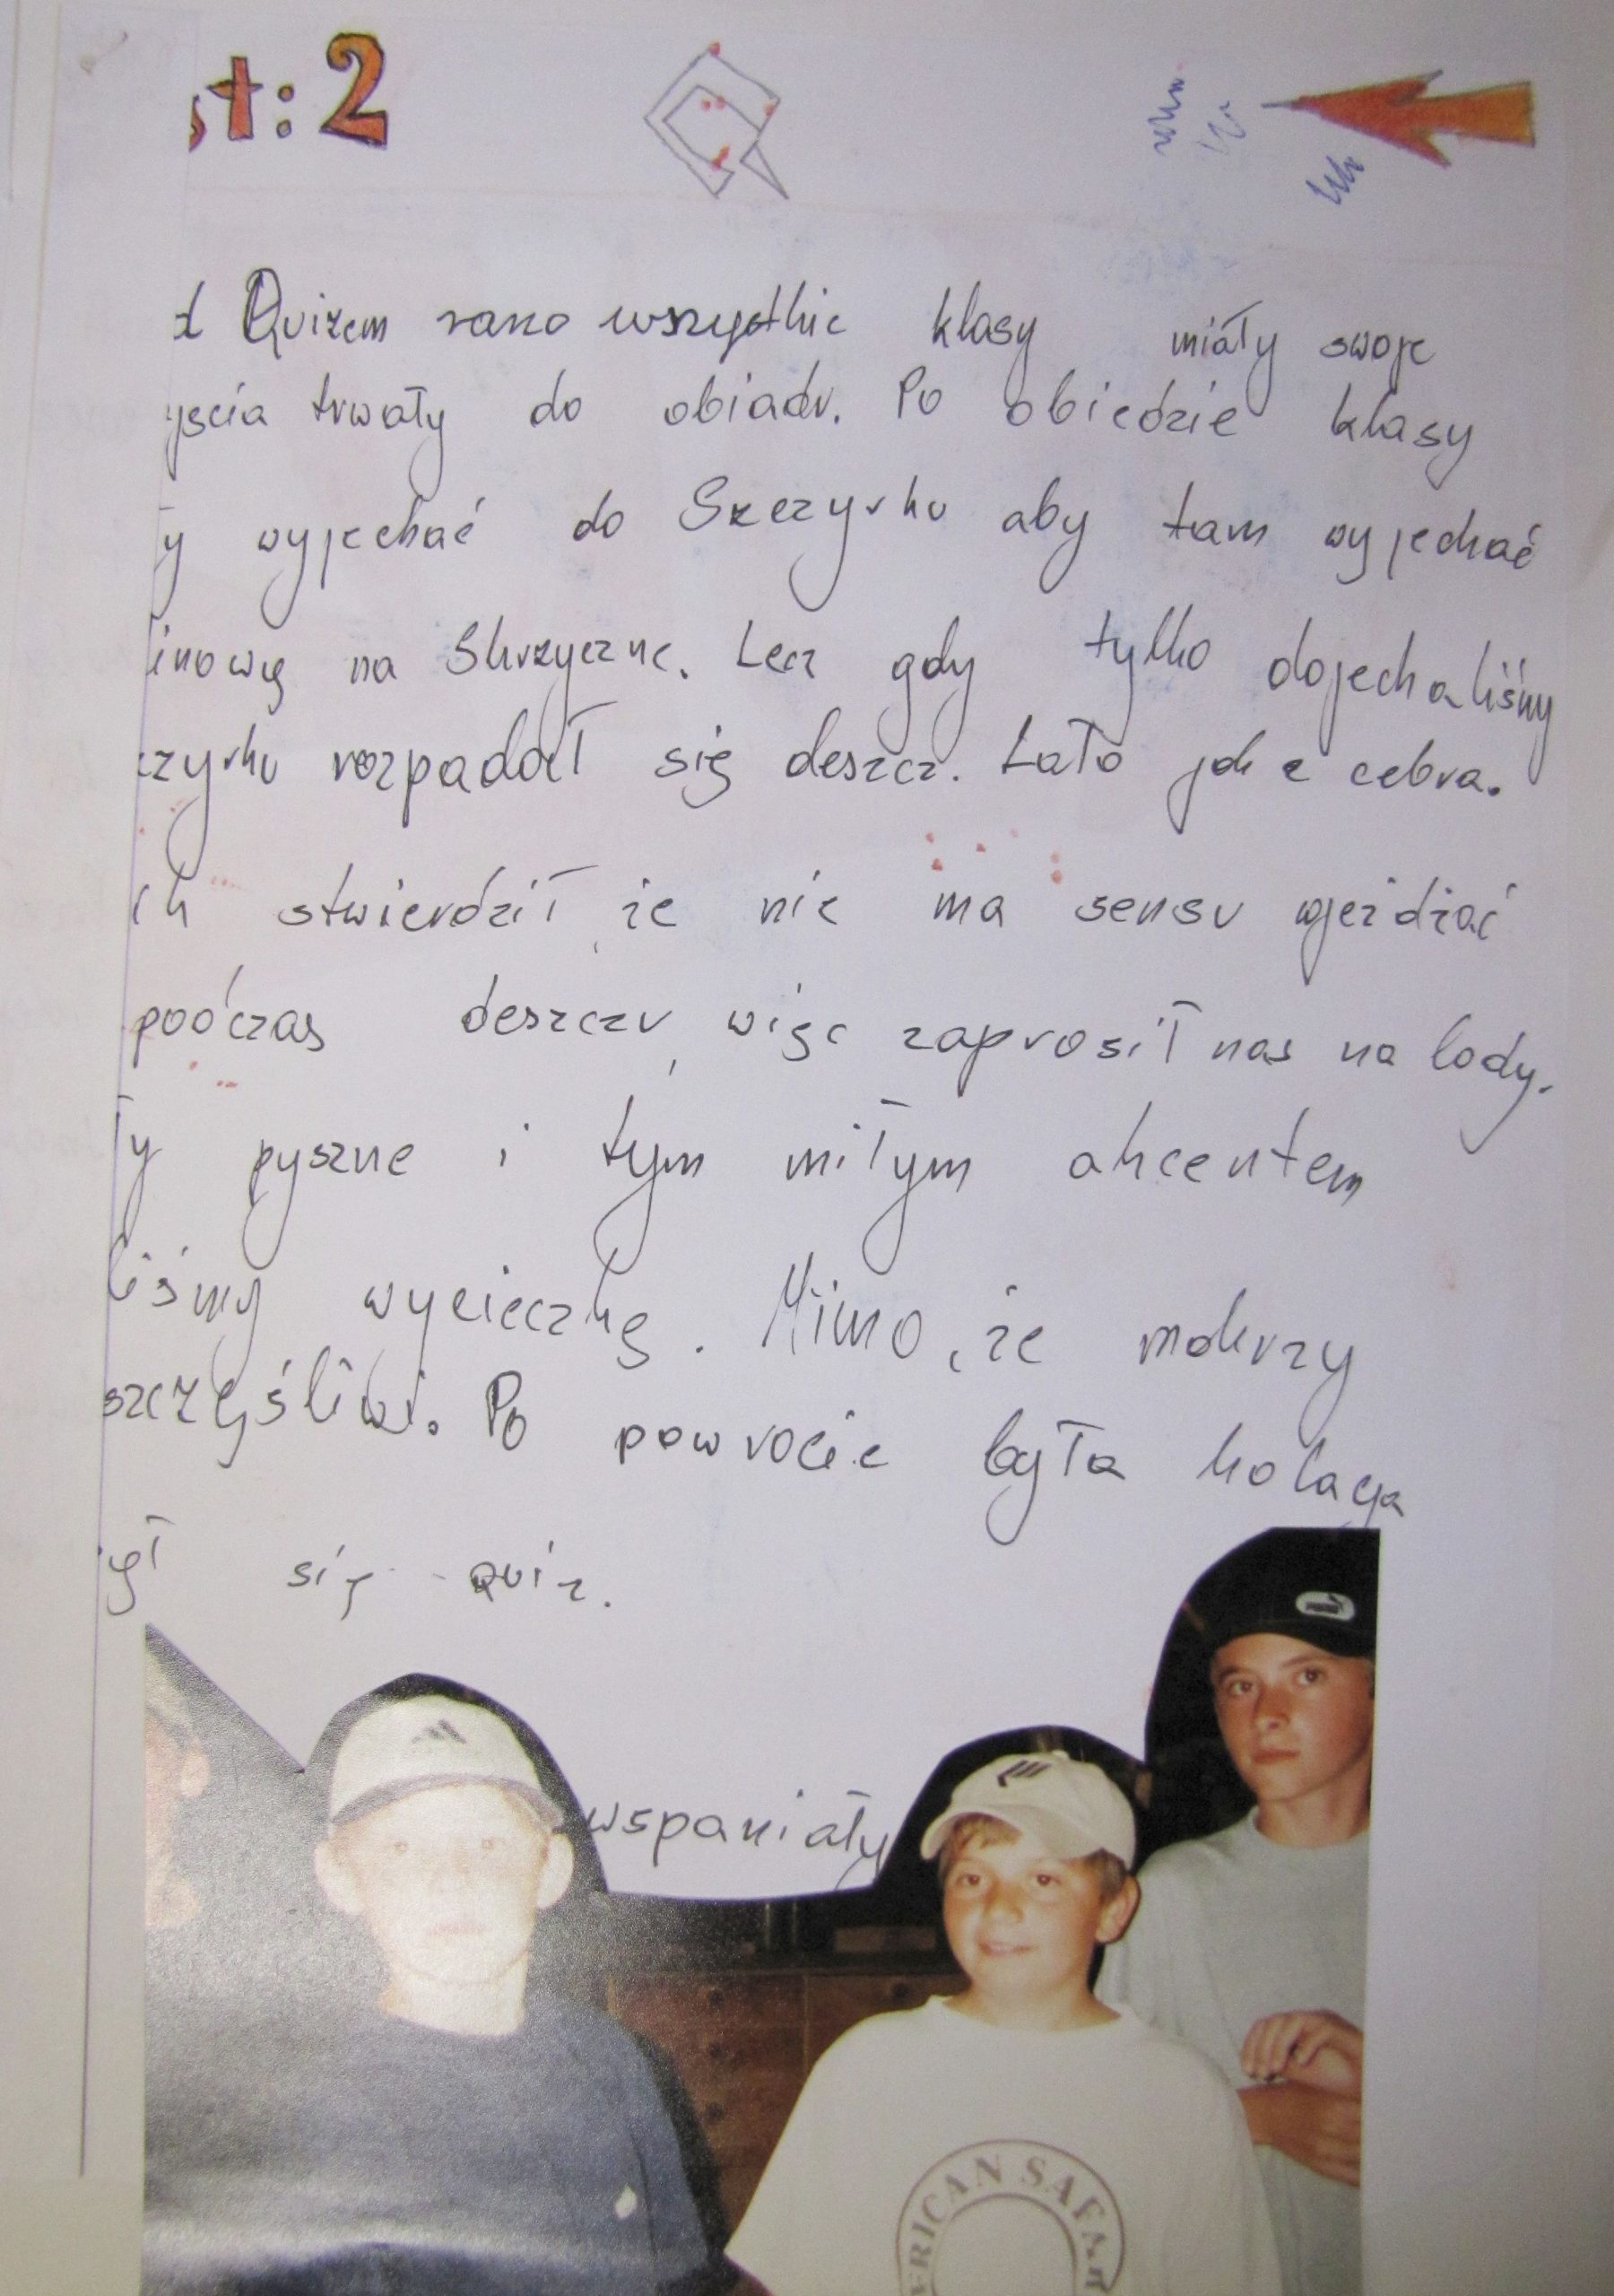 st: 2
d Quizem rano wszystkie klasy miały swoje
yscia trwały do obiadu. Po obiedzie klasy
y wyjechać do Szczyrku aby tam wyjechać
linową na Skrzyczne. Lecz gdy tylko dojechaliśmy
czyrku rozpadał się deszcz. Lało jak z cebra.
stwierdził, że nie ma sensu wjeżdżać
podczas deszczu, więc zaprosił nas na lody.
ły pyszne i tym miłym akcentem
liśmy wycieczkę. Mimo, że mokrzy
szczęśliwi. Po powrocie była kolacja
ył się quiz.
wspaniały
PUMA
ERICAN SAFARI